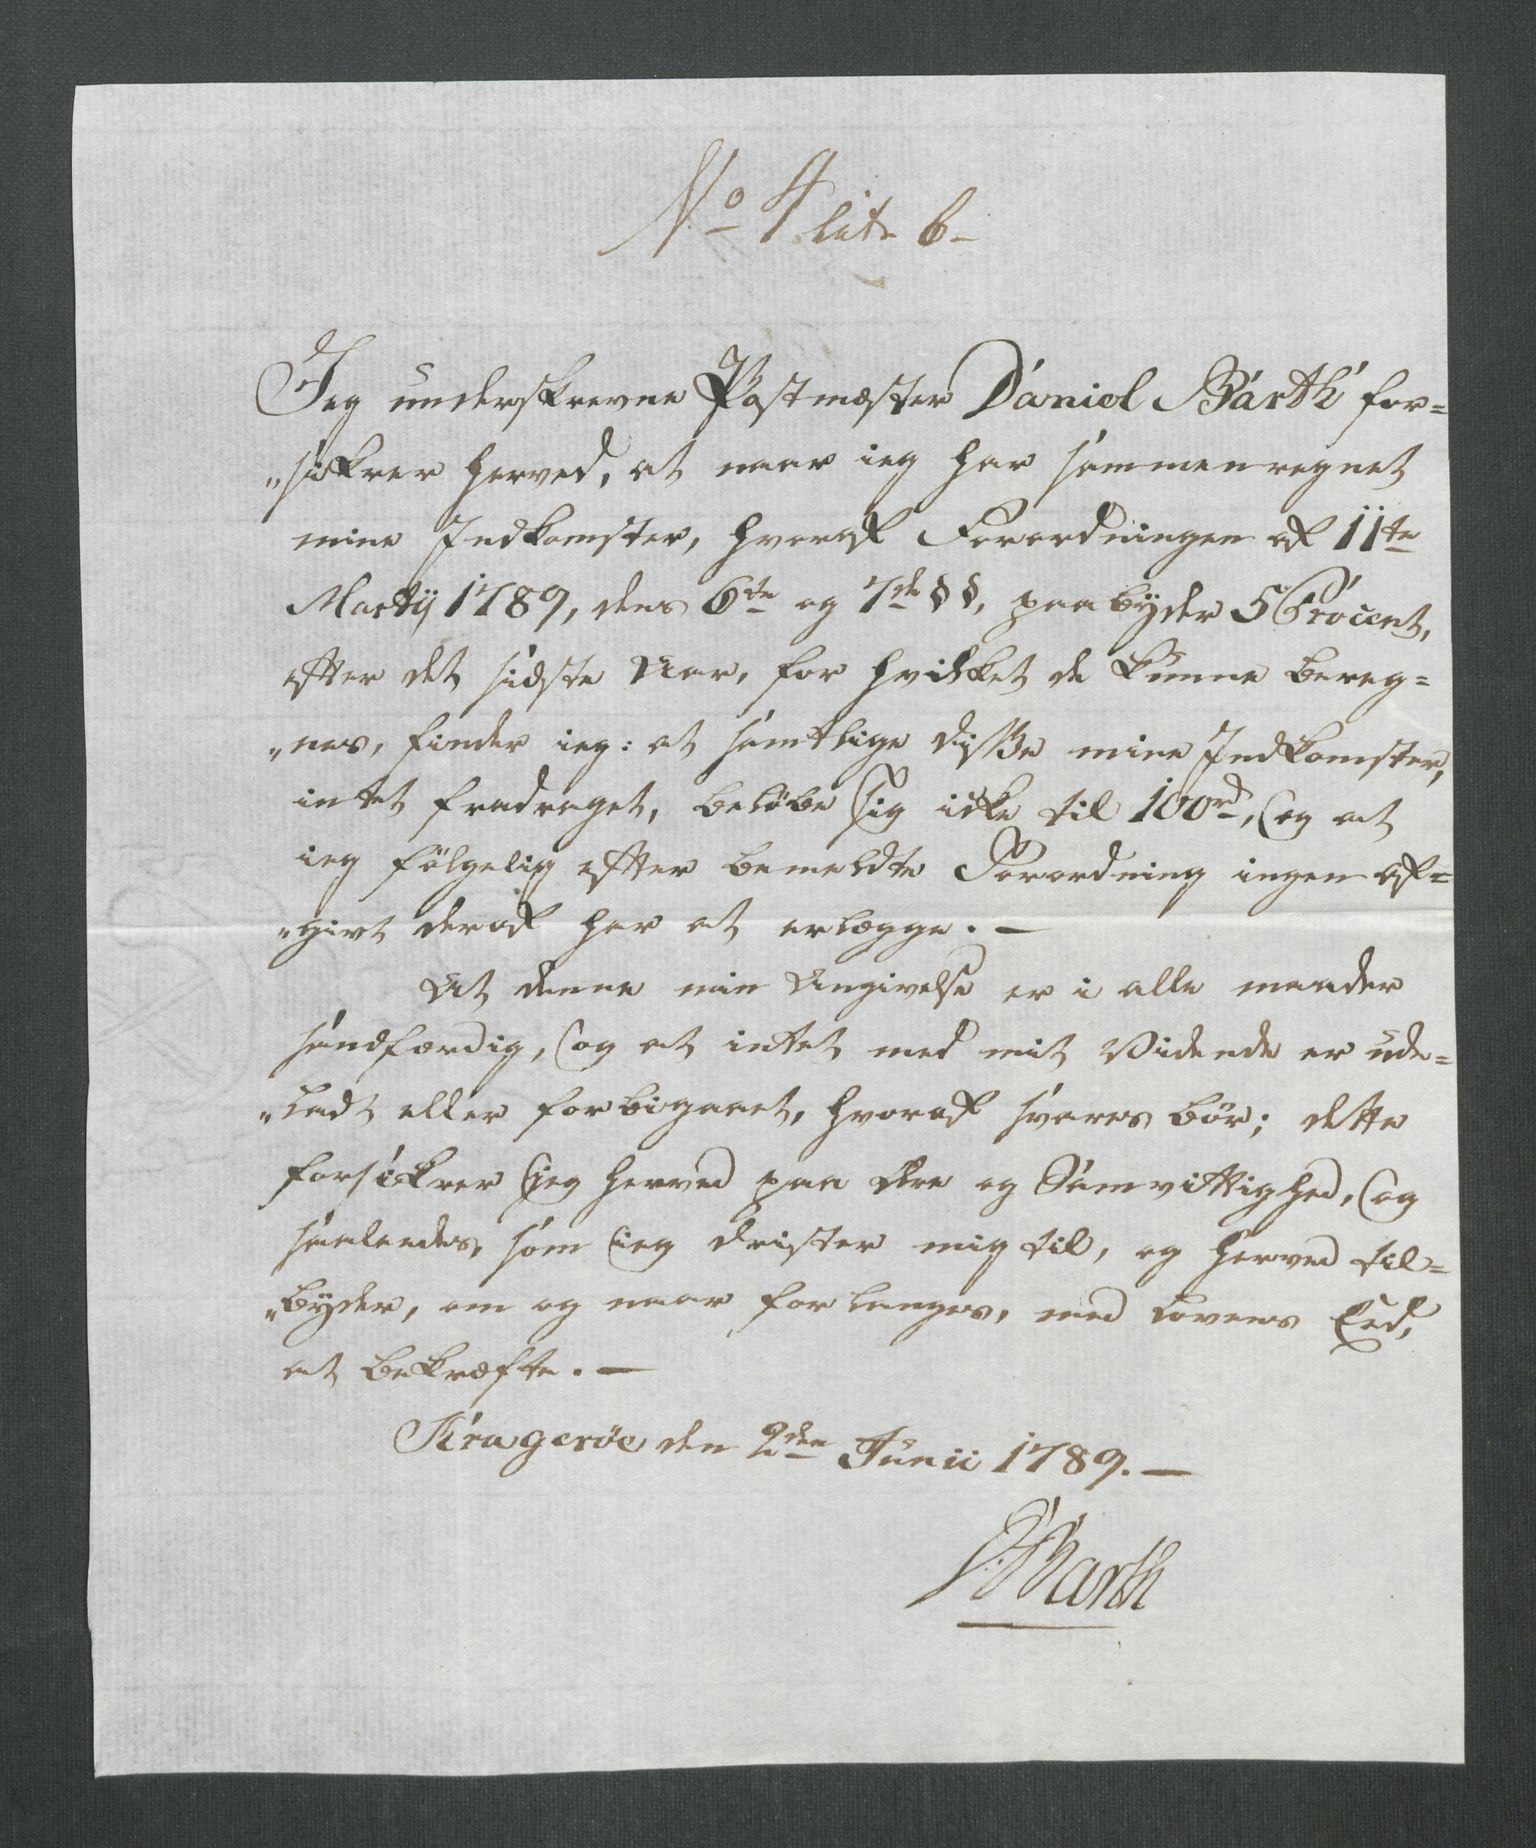 No 4 Litr b
Jeg underskrevne Postmester Daniel Barth for=
"sikrer herved, at naar ieg har sammenregnet
mine Indkomster, hvoraf Forordningen af 11te
Martij 1789, dens 6te og 7de §§, paabyder 5 Procent,
efter det sidste Aar, for hvilket de kunne bereg=
"nes, finder ieg: at samtlige disse mine Indkomster,
intet fradraget, beløbe sig icke til 100rd, og at
ieg følgelig efter bemeldte Forordning ingen af=
"givt deraf har at erlægge. —
At denne min Angivelse er i alle maader
sandfærdig, og at intet med mit Vidende er ude=
"ladt eller forbigaaet, hvoraf svares bør; dette
forsickrer jeg herved paa Ære og Samvittighed, og
saaledes, som ieg drister mig til, og herved til=
"byder, om og naar forlanges, med Lovens Eed,
at bekræfte. —
Krageröe den 2den Junii 1789. —
D Barth